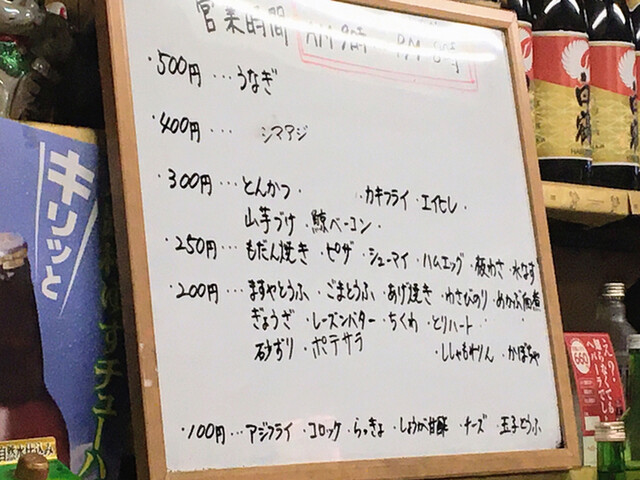 営業時間 AM9時 PM8時
・500円…うなぎ
・400円… シマアジ
・300円…とんかつ・ カキフライ・エイヒレ
山芋づけ・鯨ベーコン・
・250円…もだん焼き・ピザ・シューマイ・ハムエッグ・板わさ・水なす
・200円…ますやとうふ・ごまとうふ・あげ焼き・わさびのり・めかぶ佃煮
ぎょうざ・レーズンバター・ちくわ・とりハート・
砂ずり・ポテサラ ・ししゃもみりん・かぼちゃ
・100円…アジフライ・コロッケ・らっきょ・しょうが甘酢・チーズ・玉子とうふ
キリッと
自然水仕込み
白鶴
660